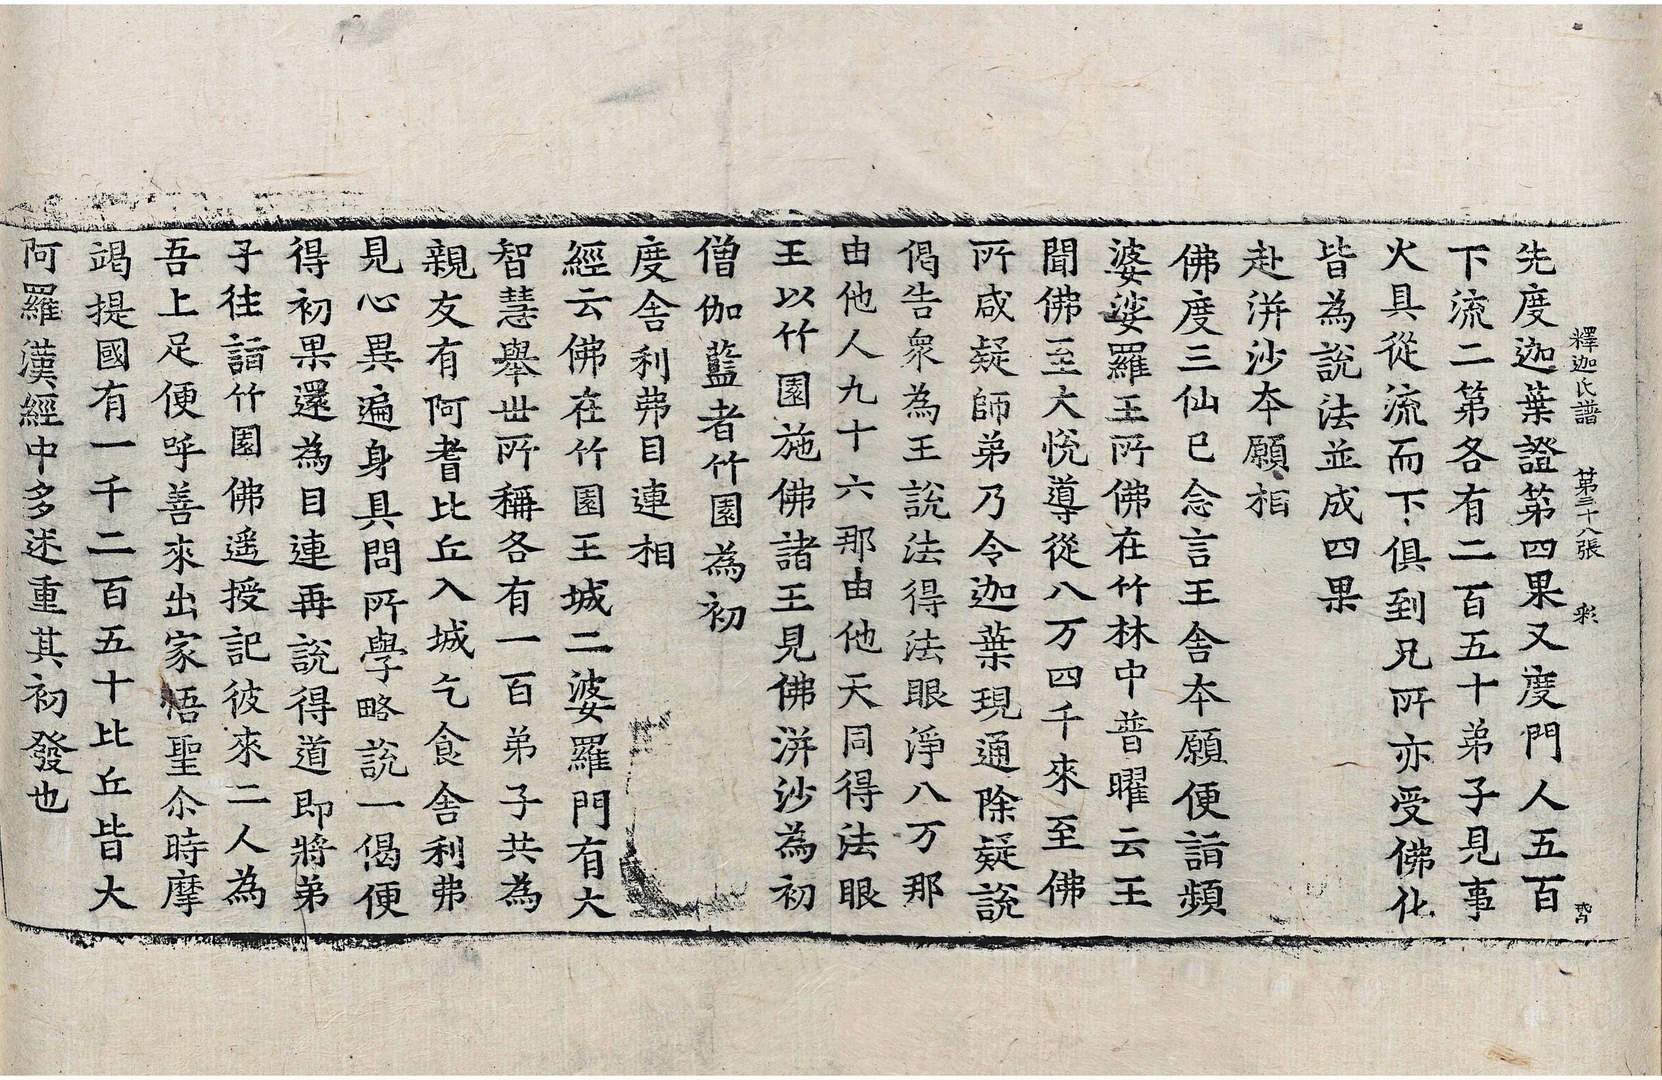 釋迦氏譜 第三十八張 彩
先度迦葉證第四果又度門人五百
下流二第各有二百五十弟子見事
火具從流而下俱到兄所亦受佛化
皆為說法並成四果
赴洴沙本願相
佛度三仙已念言王舍本願便詣頻
婆娑羅王所佛在竹林中普曜云王
聞佛至大悅導從八万四千來至佛
所咸疑師弟乃令迦葉現通除疑說
偈告衆為王說法得法眼淨八万那
由他人九十六那由他天同得法眼
王以竹園施佛諸王見佛洴沙為初
僧伽藍者竹園為初
度舍利弗目連相
經云佛在竹園王城二婆羅門有大
智慧舉世所稱各有一百弟子共為
親友有阿耆比丘入城乞食舍利弗
見心異遍身具問所學略說一偈便
得初果還為目連再說得道即將弟
子往詣竹園佛遥授記彼來二人為
吾上足便呼善來出家悟聖尒時摩
竭提國有一千二百五十比丘皆大
阿羅漢經中多述重其初發也